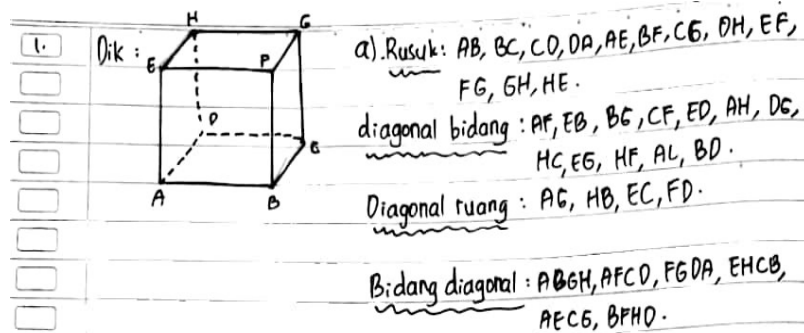 1. Dik :
H G
E F
D C
A B
a). Rusuk : AB, BC, CD, DA, AE, BF, CG, DH, EF,
FG, GH, HE.
diagonal bidang : AF, EB, BG, CF, ED, AH, DG,
HC, EG, HF, AC, BD.
Diagonal ruang : AG, HB, EC, FD.
Bidang diagonal : ABGH, AFCD, FGDA, EHCB,
AECG, BFHD.